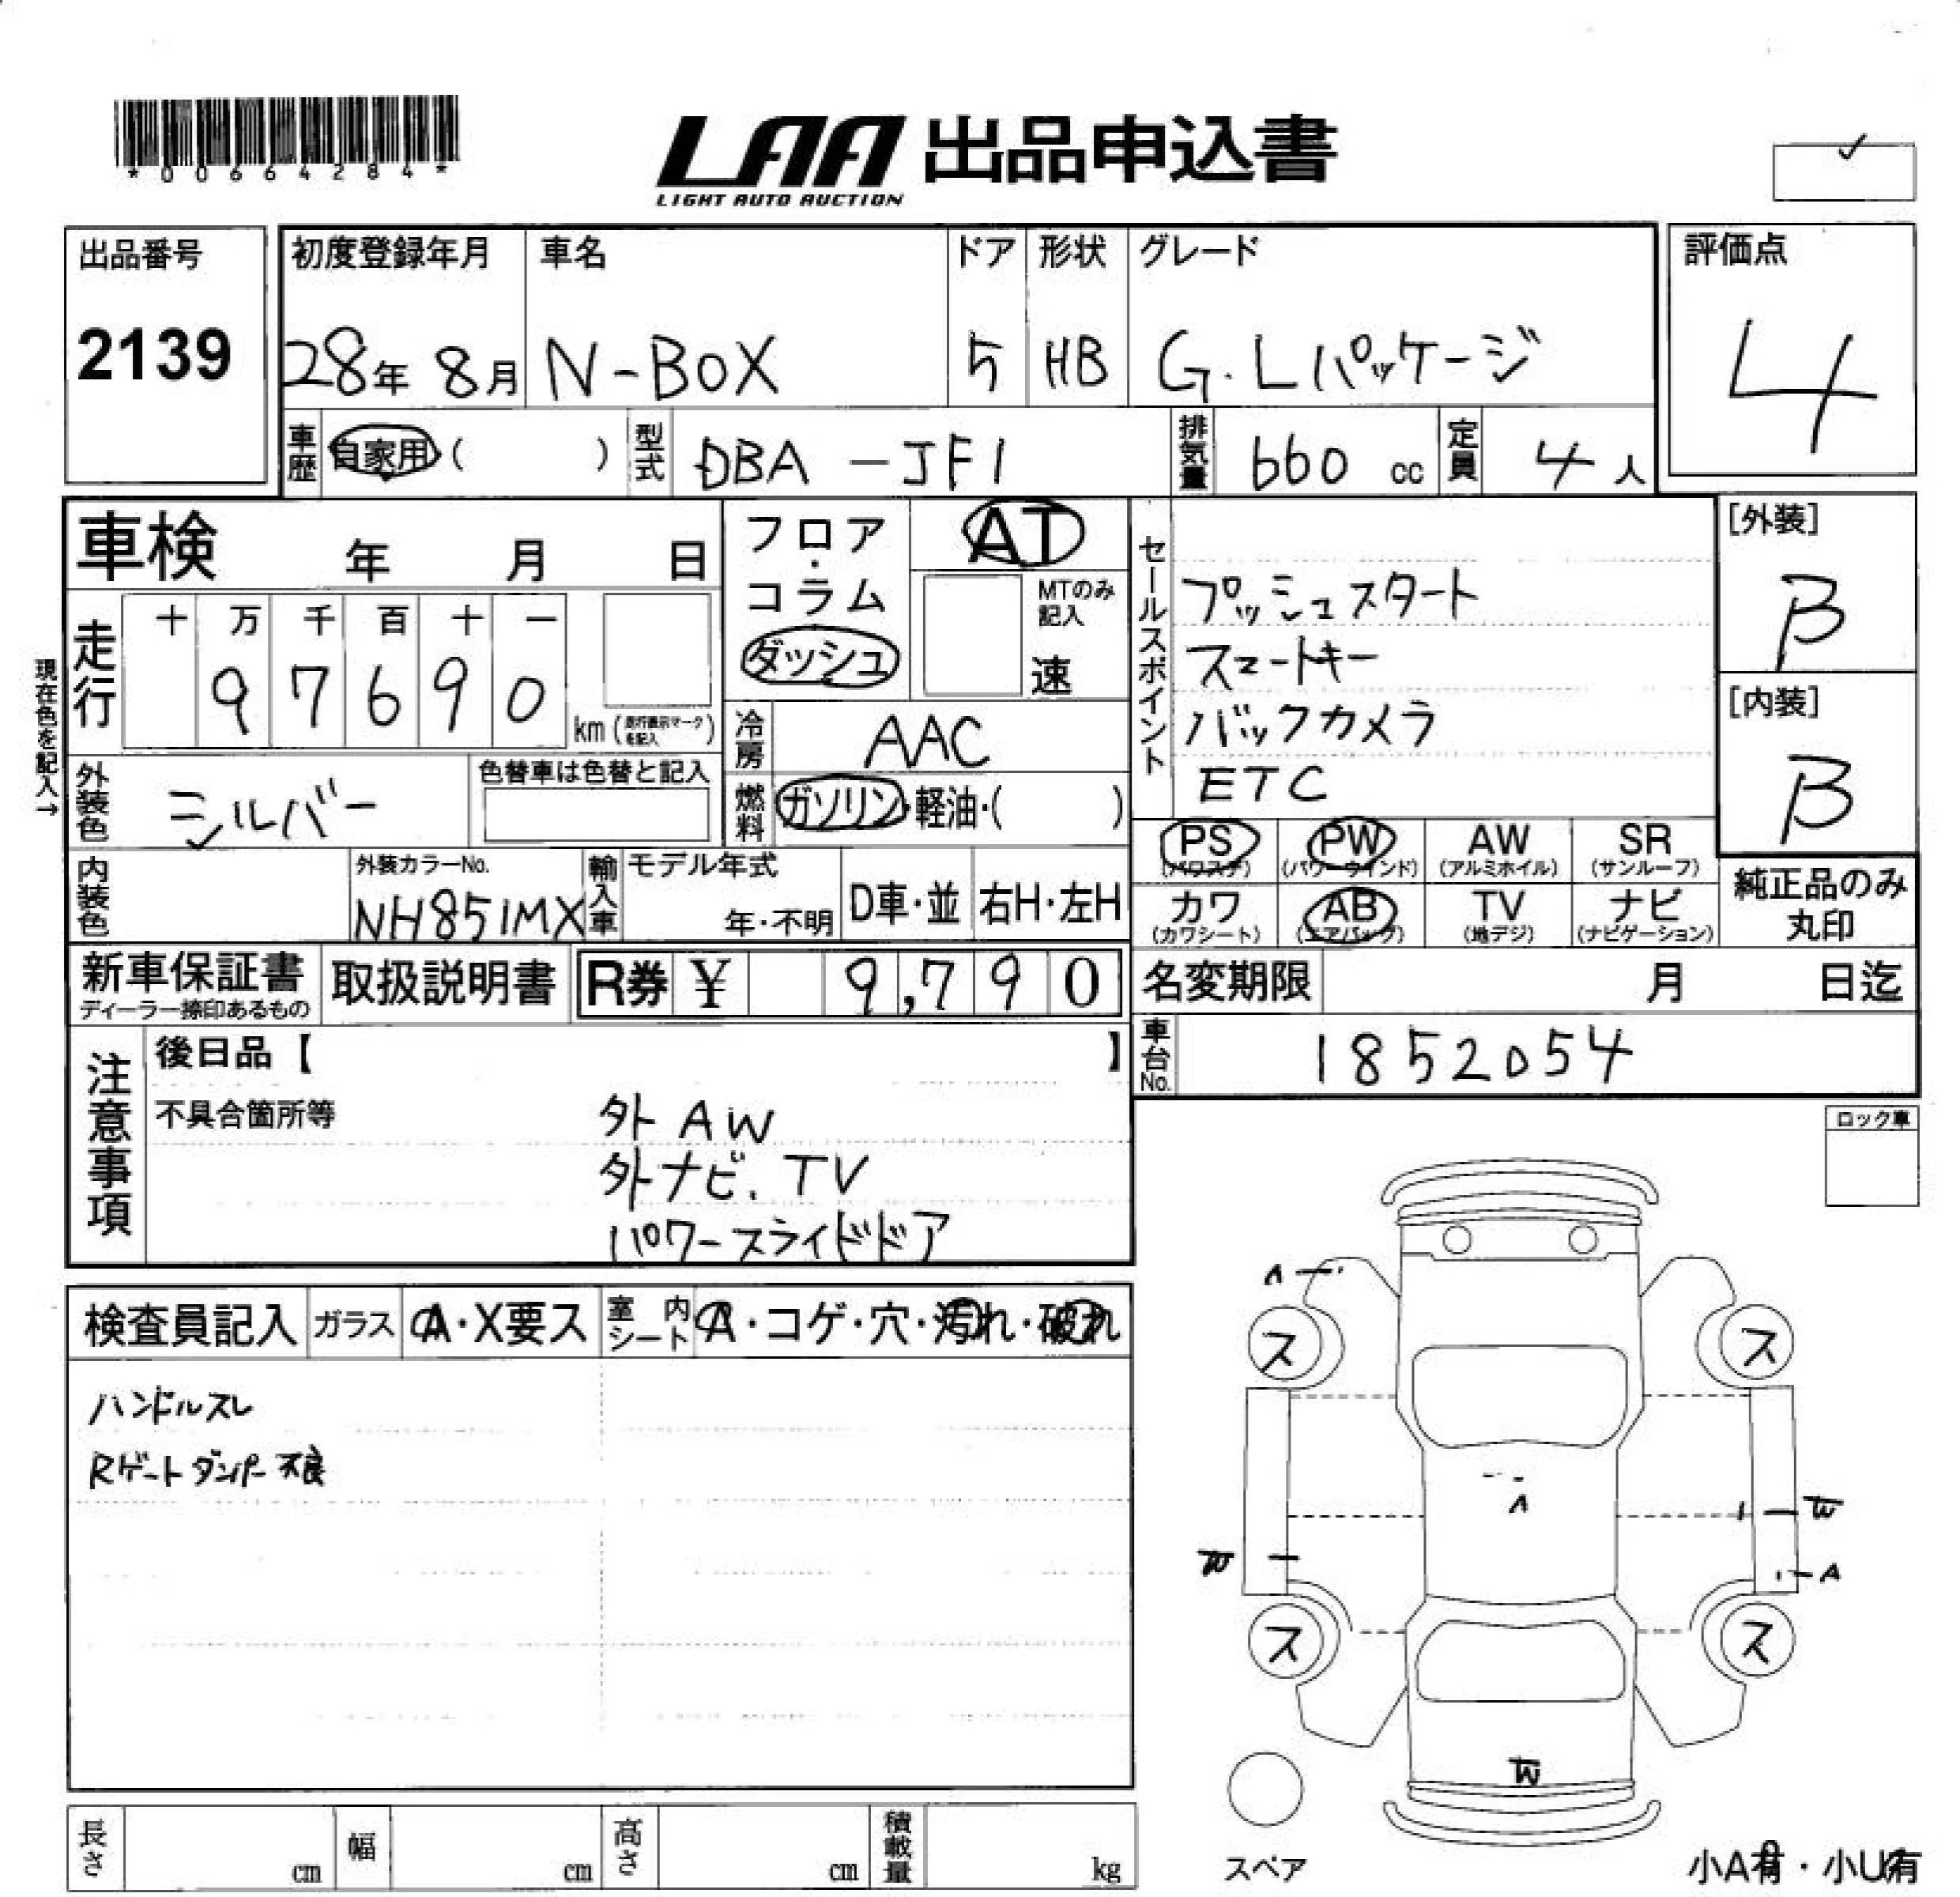 *00664284*
LAA 出品申込書
LIGHT AUTO AUCTION
出品番号 初度登録年月 車名 ドア 形状 グレード 評価点
2139 28年 8月 N-BOX 5 HB G.Lパッケージ 4
車歴 自家用( ) 型式 DBA -JF1 排気量 660 cc 定員 4人
車検 年 月 日
フロア・コラム
ダッシュ
AT
MTのみ記入
速
現在色を記入→
走行 十 万 千 百 十 一
9 7 6 9 0 km(走行表示マークを記入)
冷房 AAC
外装色 シルバー 色替車は色替と記入
燃料 ガソリン・軽油・( )
内装色 外装カラーNo. NH851MX 輸入車 モデル年式 年・不明 D車・並 右H・左H
セールスポイント
プッシュスタート
スマートキー
バックカメラ
ETC
[外装]
B
[内装]
B
PS (パワステ) PW (パワーウインド) AW (アルミホイル) SR (サンルーフ)
カワ (カワシート) AB (エアバッグ) TV (地デジ) ナビ (ナビゲーション)
純正品のみ丸印
新車保証書 ディーラー捺印あるもの 取扱説明書 R券 ¥ 9,790
名変期限 月 日迄
車台No. 1852054
注意事項
後日品【 】
不具合箇所等
外 AW
外ナビ.TV
パワースライドドア
ロック車
検査員記入 ガラス A・X要ス 室内シート A・コゲ・穴・汚れ・破れ
ハンドルスレ
Rゲートダンパー不良
A
ス ス
A
W W
A
ス ス
W
スペア
小A有・小U有
長さ cm 幅 cm 高さ cm 積載量 kg